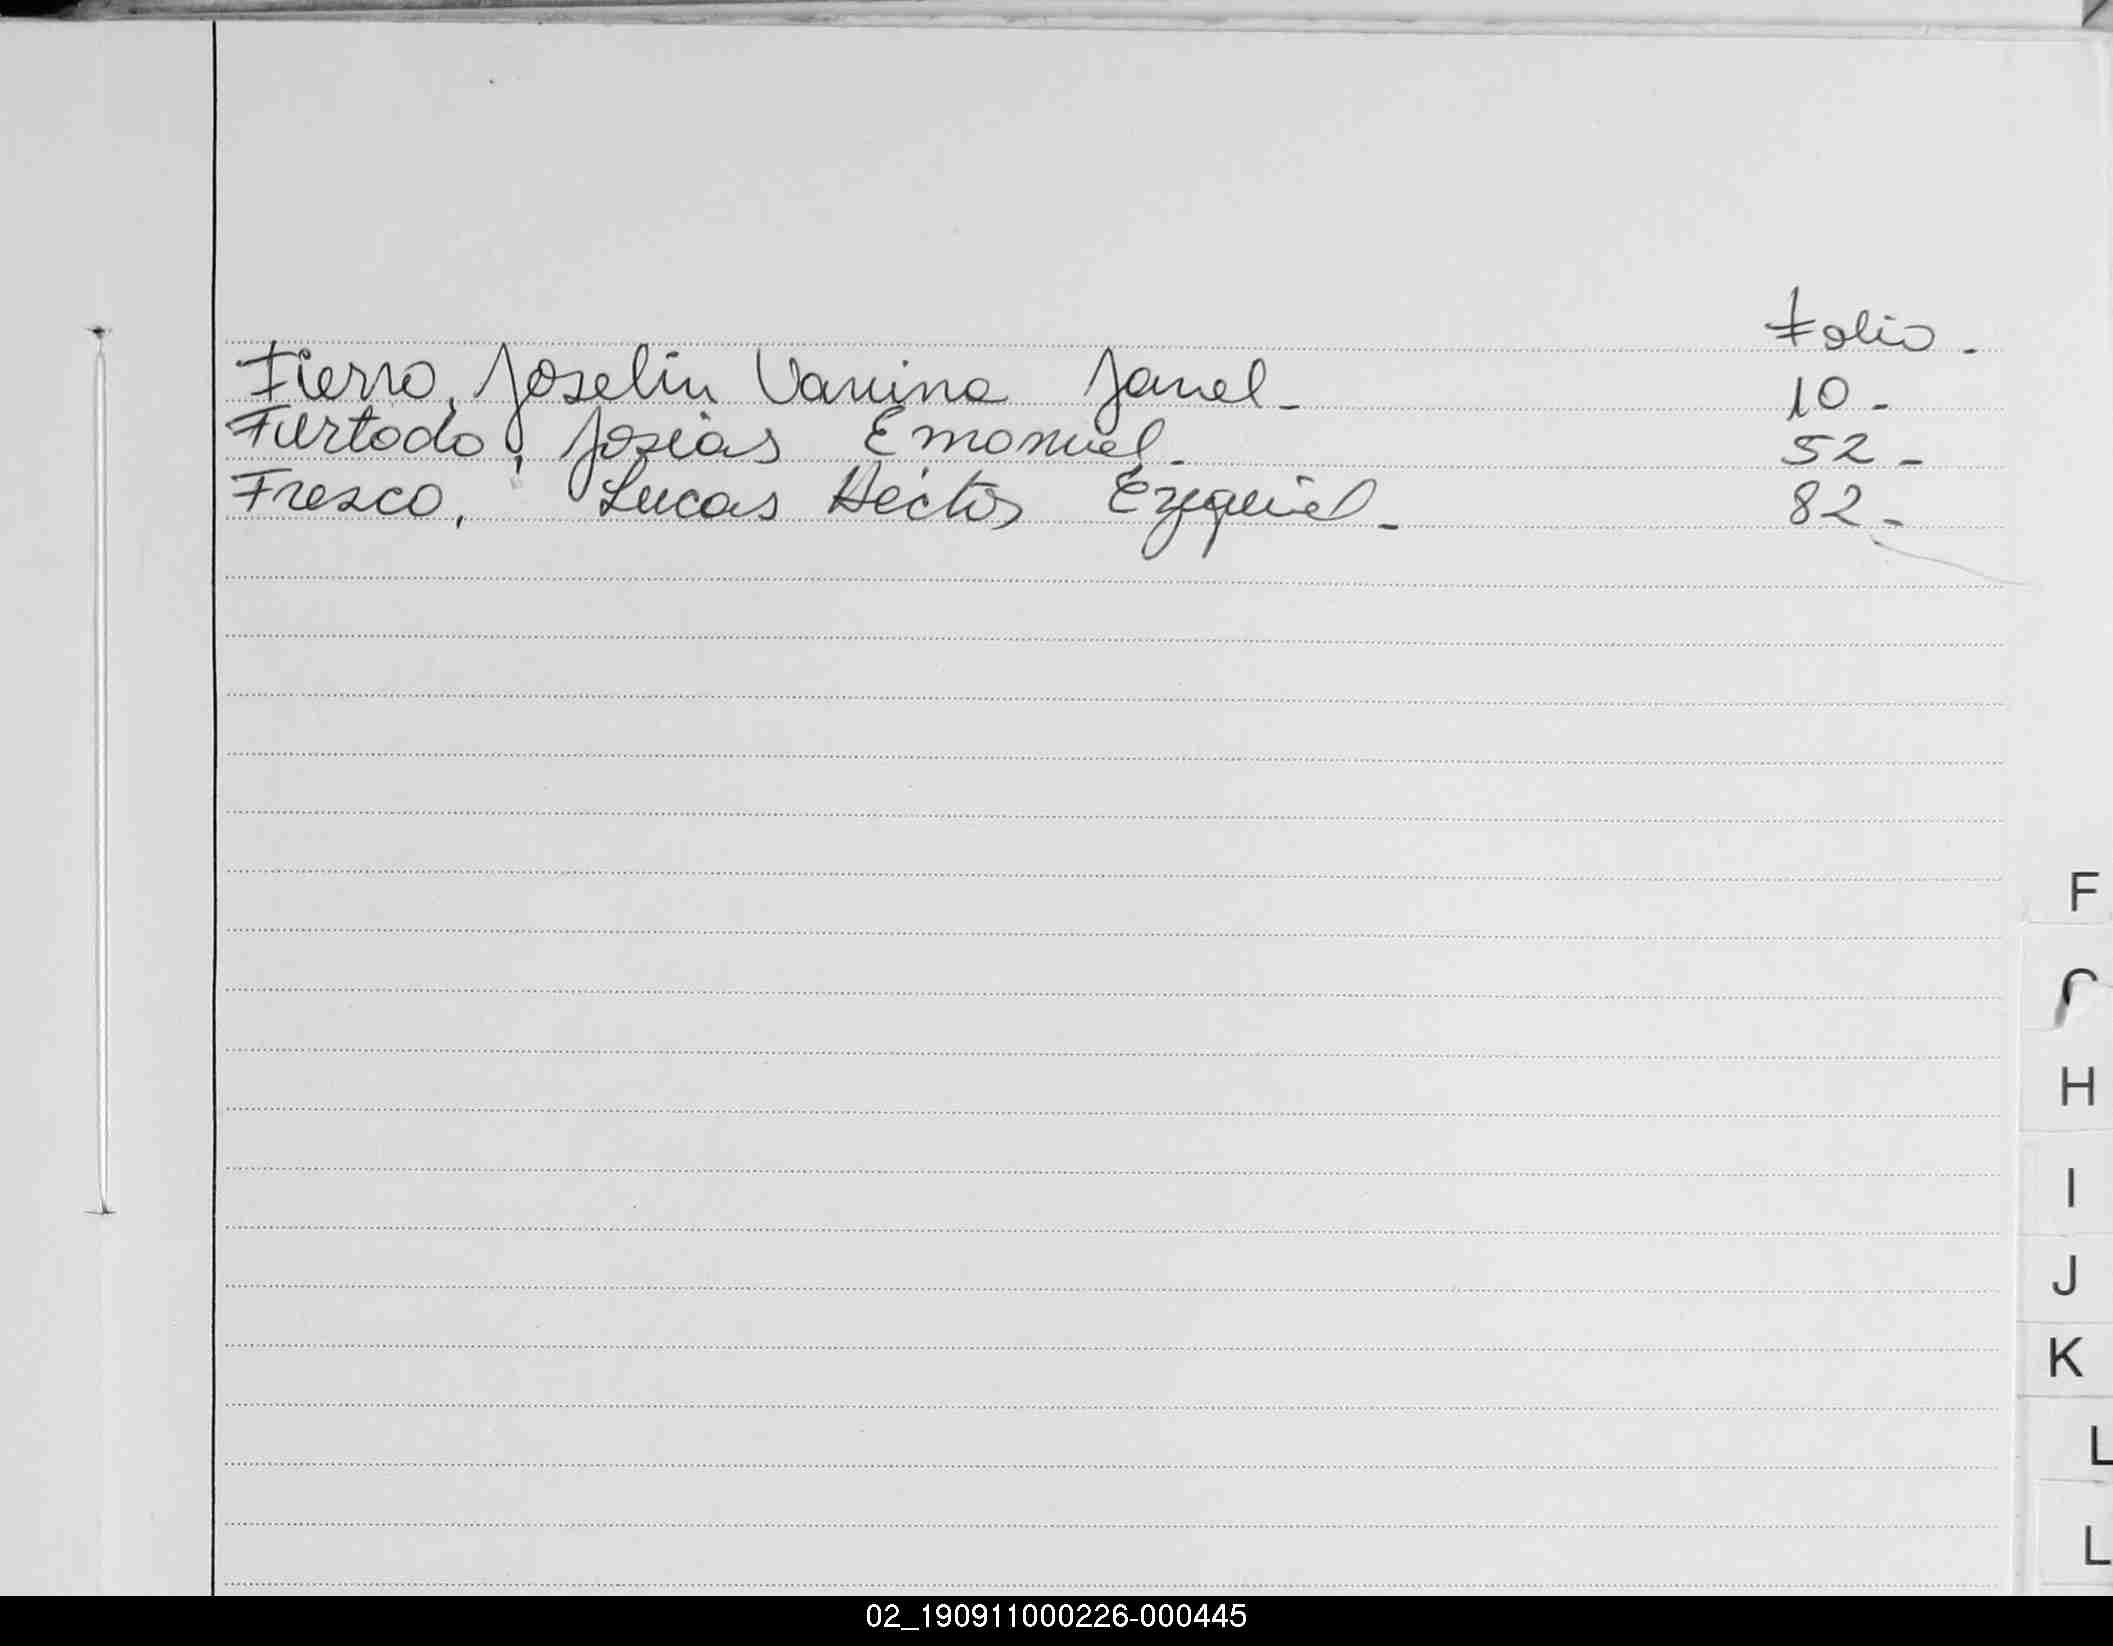 Folio.
Fierro, Joselin Vanina Janel- 10-
Furtado, Josias Emanuel- 52-
Fresco, Lucas Héctor Ezequiel- 82-
F
H
I
J
K
L
L
02_190911000226-000445